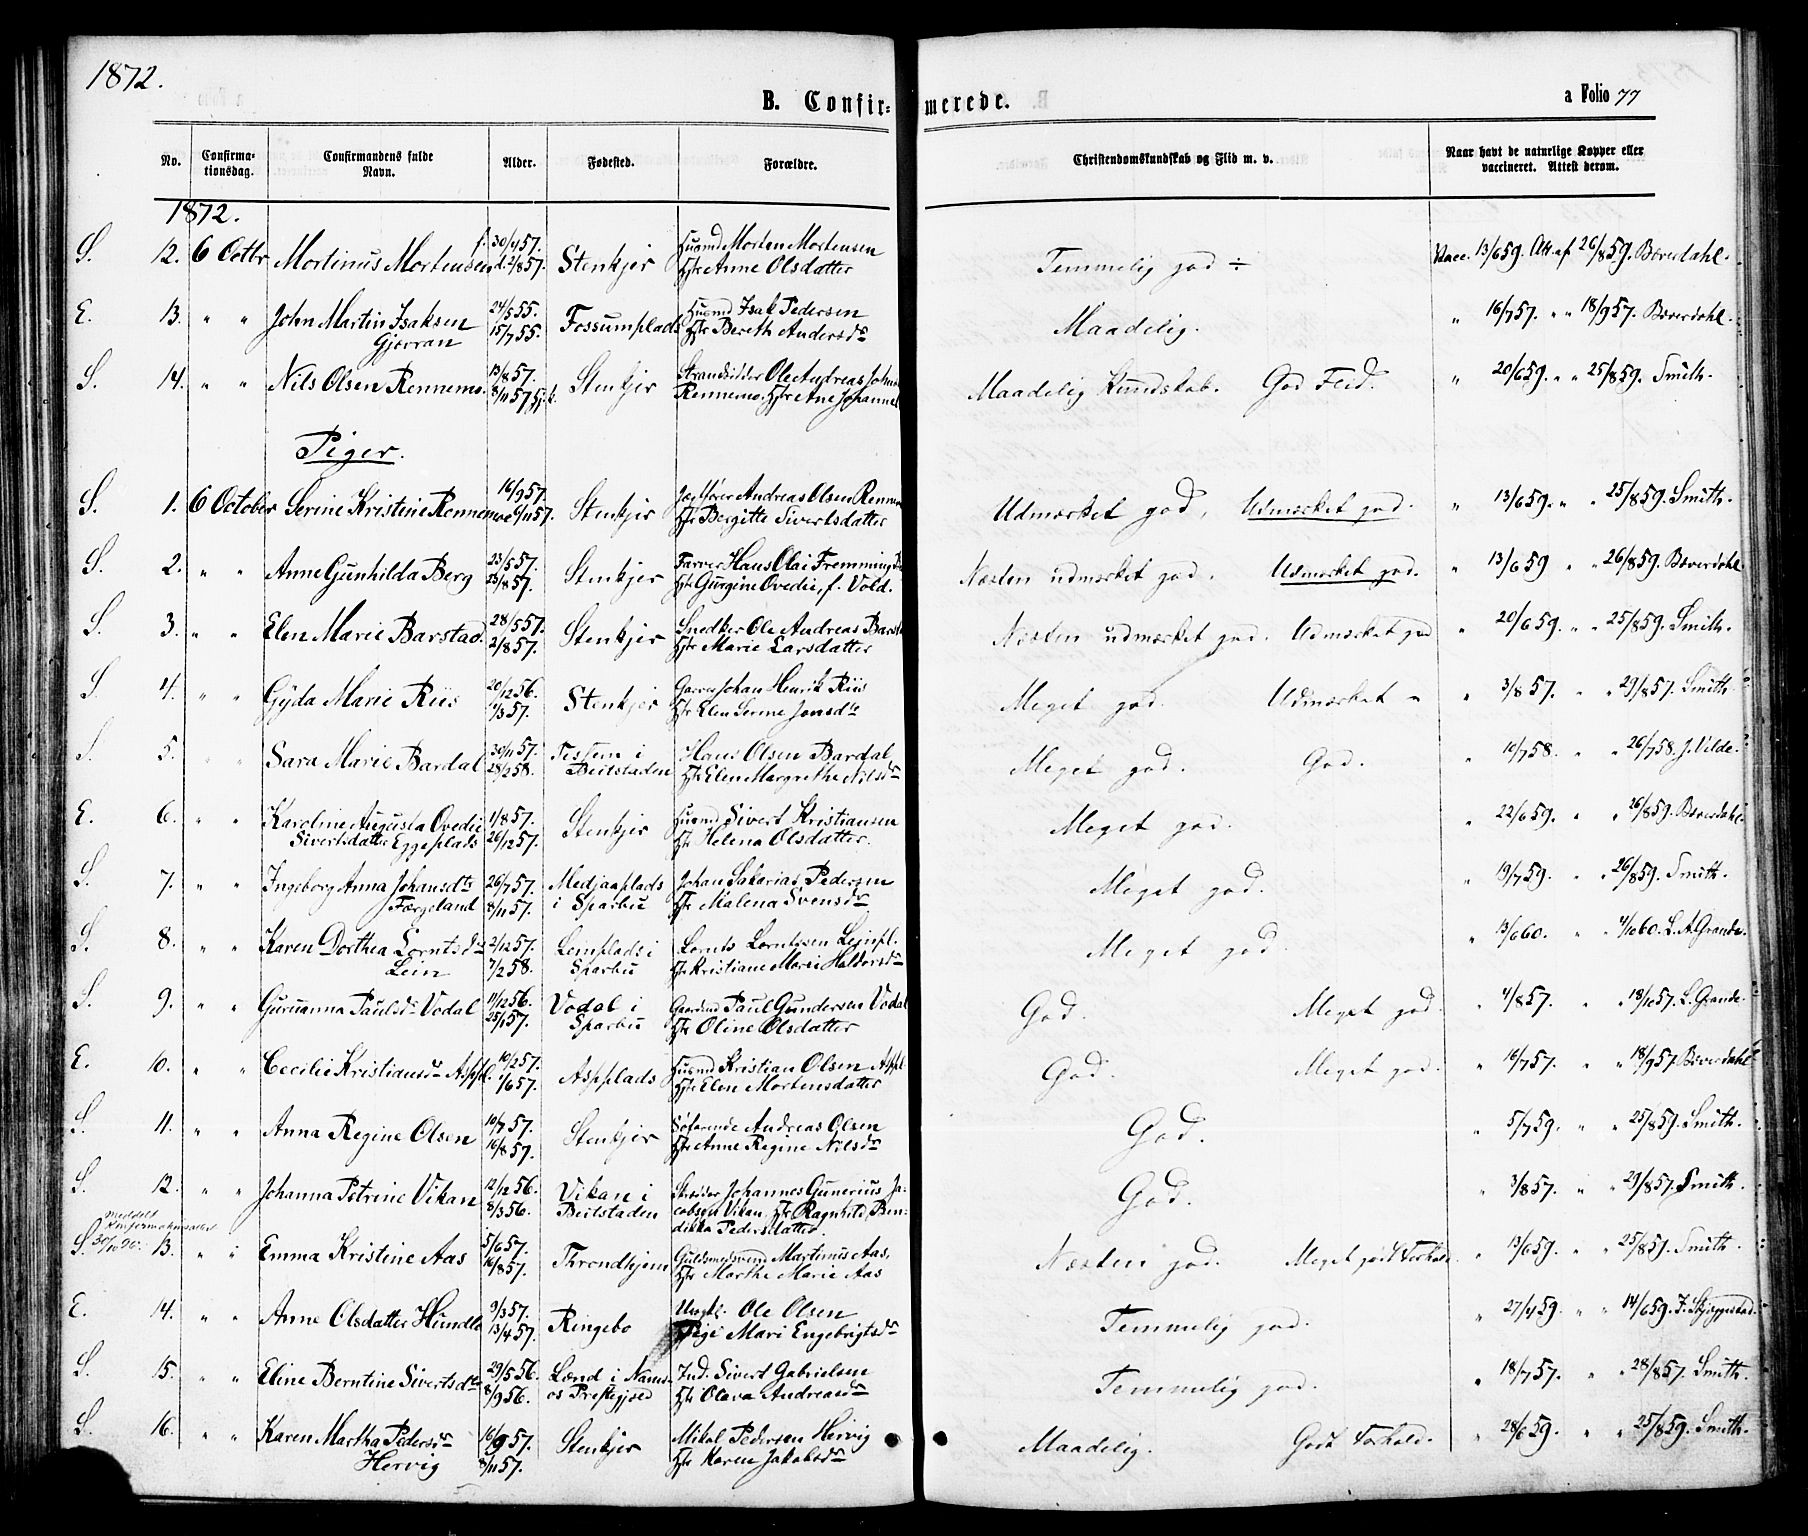 1872.
B. Confirmerede.
a Folio 77
No. Confirmationsdag. Confirmandens fulde Navn. Alder. Fødested. Forældre. Christendomskundskab og Flid m. v. Naar havt de naturlige Kopper eller vaccineret. Attest derom.
1872.
S. 12. 6 Octbr Martinus Mortensen f. 30/4 57. d. 2/8 57. Stenkjer Husmd Morten Mortensen Temmelig god ÷ Vacc. 13/6 59. Att. af 26/8 59. Bæverdahl.
Hstr Anne Olsdatter
E. 13. " " John Martin Isaksen 24/5 55. Fossumplads Husmd Isak Pedersen Maadelig. " 16/7 57. " " 18/9 57. Bæverdahl.
Gjævran 15/7 55. Hstr Bereth Andersdr
S. 14. " " Nils Olsen Rennemo. 13/8 57. Stenkjer Strandsidder Ole Andreas Johns Maadelig Kundskab. God Flid. " 20/6 59. " " 25/8 59. Smith.
8/11 57 Rennemo. Hstr Ane Johannes
Piger.
S. 1. 6 October Serine Kristine Rennemo 16/9 57. Stenkjer Andreas Olsen Rennemo Udmærket god. Udmærket god. " 13/6 59. " " 25/8 59. Smith.
6/11 57. Hstr Bergitte Sivertsdatter
S. 2. " " Anne Gunhilda Berg 23/5 57. Stenkjer Farver Hans Olai Fremming Næsten udmærket god. Udmærket god. " 13/6 59 " " 26/8 59. Bæverdahl
23/8 57. Hstr Gurgine Ovedie, f. Vold.
S. 3. " " Elen Marie Barstad. 28/5 57. Stenkjer Snedker Ole Andreas Barst Næsten udmærket god. Udmærket god " 20/6 59. " " 25/8 59. Smith.
2/8 57. Hstr Marie Larsdatter
S. 4. " " Gyda Marie Riis 20/12 56. Stenkjer Garver Johan Henrik Riis Meget god. Udmærket " " 3/8 57. " " 29/8 57. Smith
1/3 57. Hstr Elen Serine Jonsdtr
S. 5. " " Sara Marie Bardal 30/11 57. Tessem i Hans Olsen Bardal Meget god. God. " 10/7 58. " " 26/7 58. J. Vilde.
28/2 58. Beitstaden Hstr Elen Margrethe Nilsdr
E. 6. " " Karoline Augusta Ovedie 1/8 57. Stenkjer Husmd Sivert Kristiansen Meget god. " 22/6 59. " " 26/8 59. Bæverdahl
Sivertsdatter Eggeplads 26/12 57. Hstr Helena Olsdatter.
S. 7. " " Ingeborg Anna Johansdtr 26/7 57. Medjaaplads Johan Sakarias Pedersen Meget god. " 19/7 59. " " 26/8 59. Smith.
Færgeland 8/11 57. i Sparbu Hstr Malena Svensdr
S. 8. " " Karen Dorthea Lorntsdtr 2/12 57. Leinplads i Lornts Lorntssen Leinpl. Meget god " 13/6 60. " " 4/10 60. L. A. Grande.
Lein 7/2 58. Sparbu Hstr Kristiane Marie Haldorsdr
S. 9. " " Guruanna Paulsdr Vodal 11/12 56. Vodal i Gaardmd Paul Gundersen Vodal God. Meget god. " 4/8 57. " " 18/10 57. L. Grande.
25/1 57. Sparbu Hstr Oline Olsdatter
E. 10. " " Cecilie Kristiansdr Asppl. 10/2 57. Aspplads Husmd Kristian Olsen Asppl God. Meget god. " 16/7 57. " " 18/9 57. Bæverdahl
1/6 57. Hstr Elen Mortensdatter
S. 11. " " Anna Regine Olsen 10/7 57. Stenkjer Søfarende Andreas Olsen God. " 5/7 59. " " 25/8 59. Smith.
16/8 57. Hstr Anne Regine Nilsdr
S. 12. " " Johanna Petrine Vikan 12/12 56. Vikan i Skrædder Johannes Gunerius Ja- God. " 3/8 57. " " 29/8 57. Smith.
8/3 56. Beitstaden cobsen Vikan. Hstr Ragnhild Ben-
dikka Pedersdatter.
meddelt
Konfirmationsattest
30/10 90.
S. 13. " " Emma Kristine Aas 5/6 57. Throndhjem Guldsmedsvend Martinus Aas, Næsten god. Meget godt Forhold. " 13/6 59. " " 25/8 59. Smith.
16/8 57. Hstr Marthe Marie Aas
E. 14. " " Anne Olsdatter Hundle 9/3 57. Ringebo Ungkl. Ole Olsen Temmelig god. " 27/4 59. " " 14/6 59. J. Skjeggestad.
13/4 57. Pige Mari Engebrigtsdr
S. 15. " " Eline Berntine Sivertsdtr 29/5 56. Lænd i Nams- Ind. Sivert Gabrielsen Temmelig god. " 18/7 57. " " 28/8 57. Smith.
8/9 56. os Prestegjeld Hstr Olava Andreasdr
S. 16. " " Karen Martha Pedersdr 16/9 57. Stenkjer Mikal Pedersen Hervig Maadelig. Godt Forhold. " 28/6 59. " " 25/8 59. Smith.
Hervig 8/11 57. Hstr Karen Jakobsdr